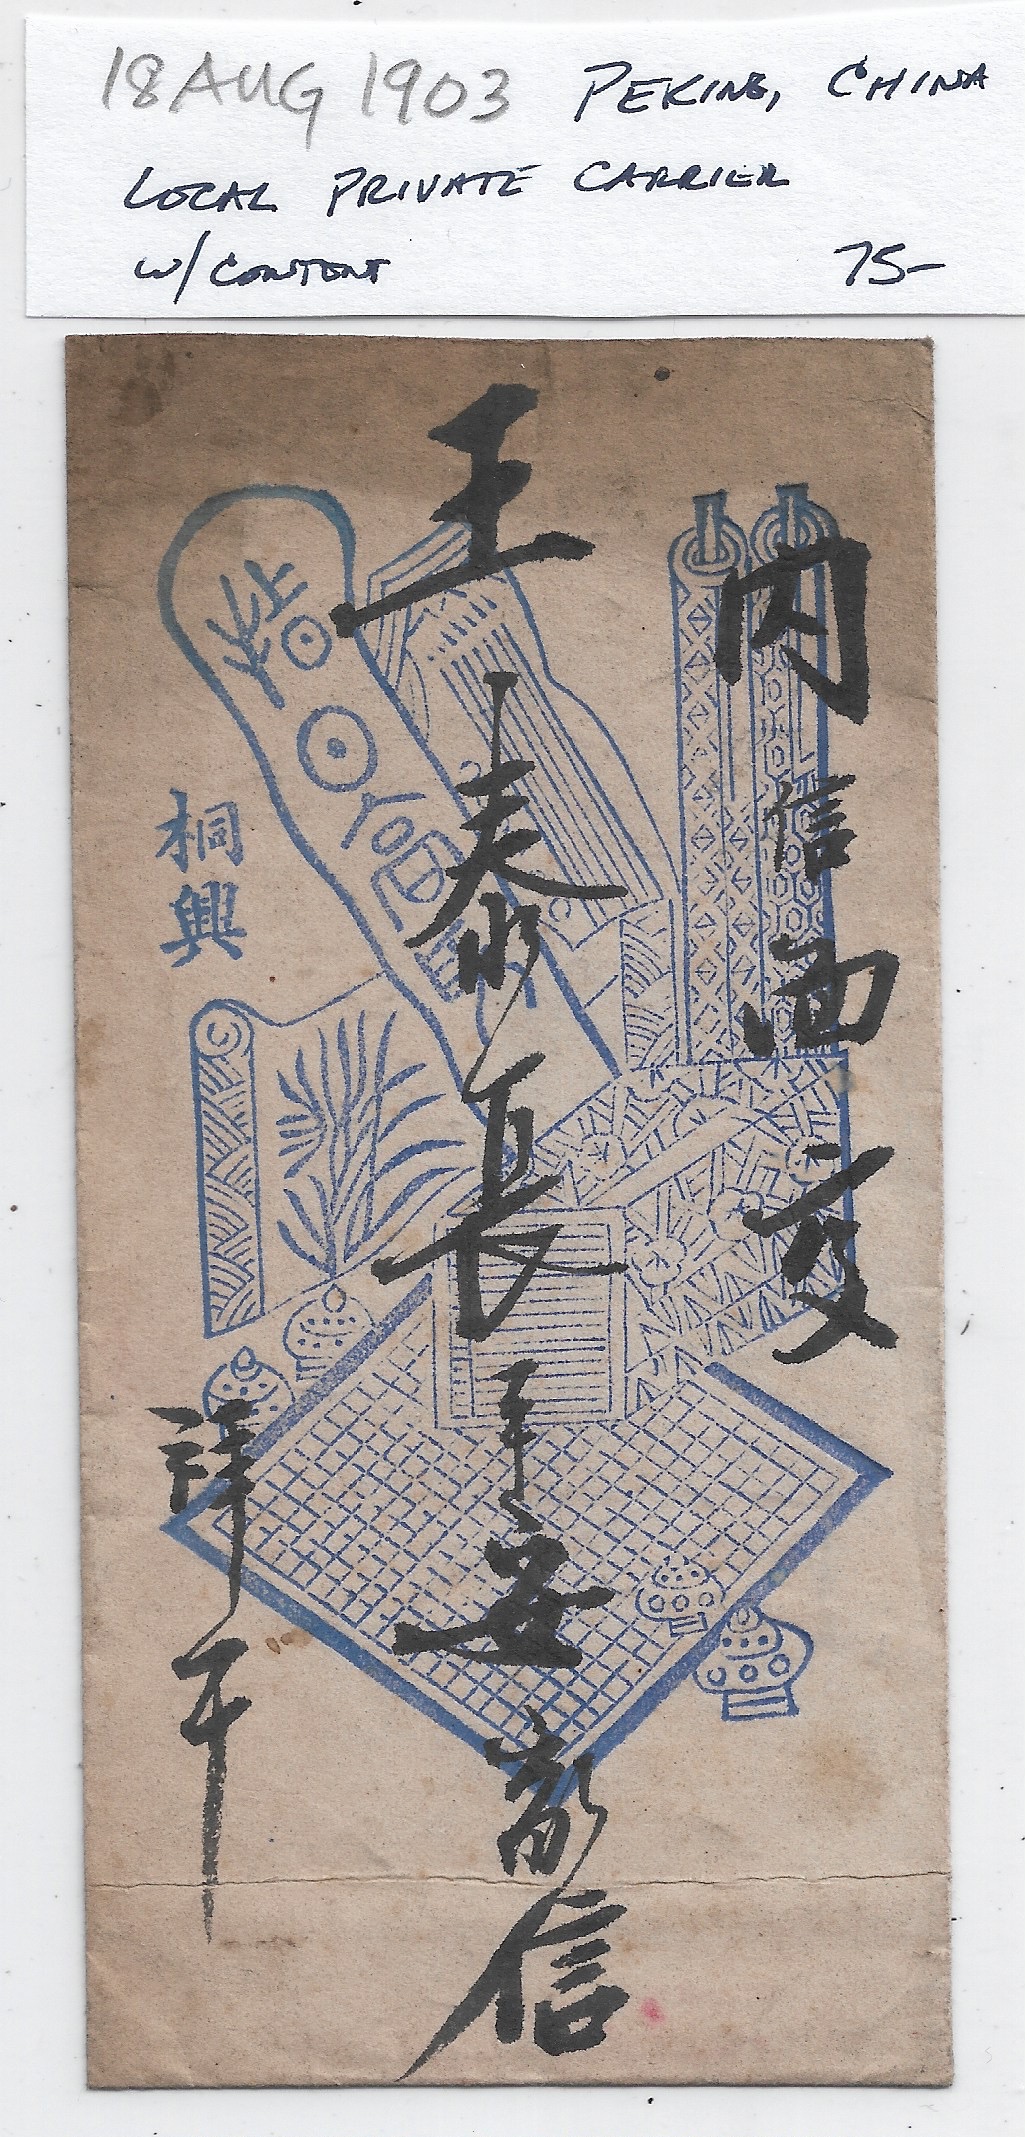 18 AUG 1903 PEKING, CHINA
LOCAL PRIVATE CARRIER
W/ CONTENT 75-
內信面交
王泰長平安家信
祥干
桐興